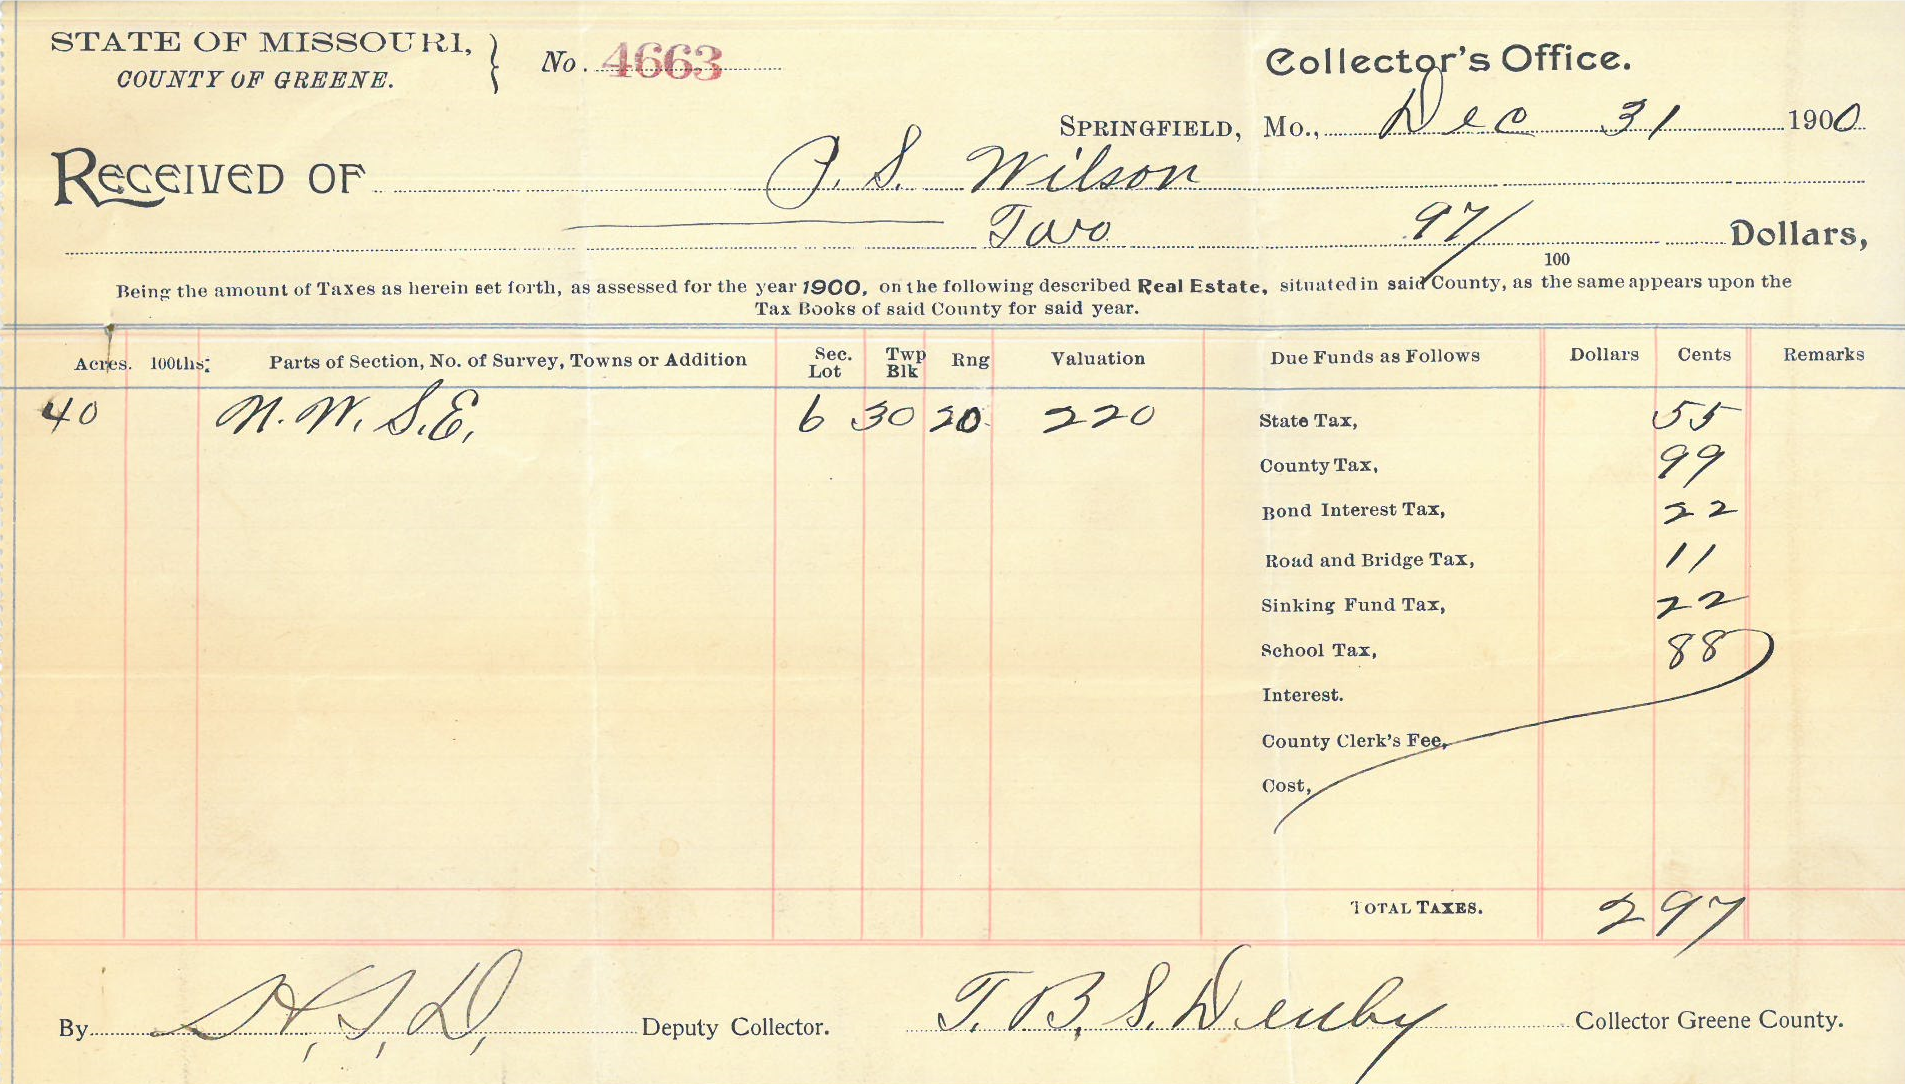 STATE OF MISSOURI,
COUNTY OF GREENE.
No. 4663
Collector's Office.
SPRINGFIELD, Mo., Dec 31 1900
RECEIVED OF P. S. Wilson
Two 97/100 Dollars,
Being the amount of Taxes as herein set forth, as assessed for the year 1900, on the following described Real Estate, situated in said County, as the same appears upon the
Tax Books of said County for said year.
Acres. 100ths. Parts of Section, No. of Survey, Towns or Addition Sec. Lot Twp Blk Rng Valuation Due Funds as Follows Dollars Cents Remarks
40 N. W. S. E. 6 30 20 220 State Tax, 55
County Tax, 99
Bond Interest Tax, 22
Road and Bridge Tax, 11
Sinking Fund Tax, 22
School Tax, 88
Interest.
County Clerk's Fee,
Cost,
TOTAL TAXES. 2 97
By Deputy Collector. T. B. S. Denby Collector Greene County.